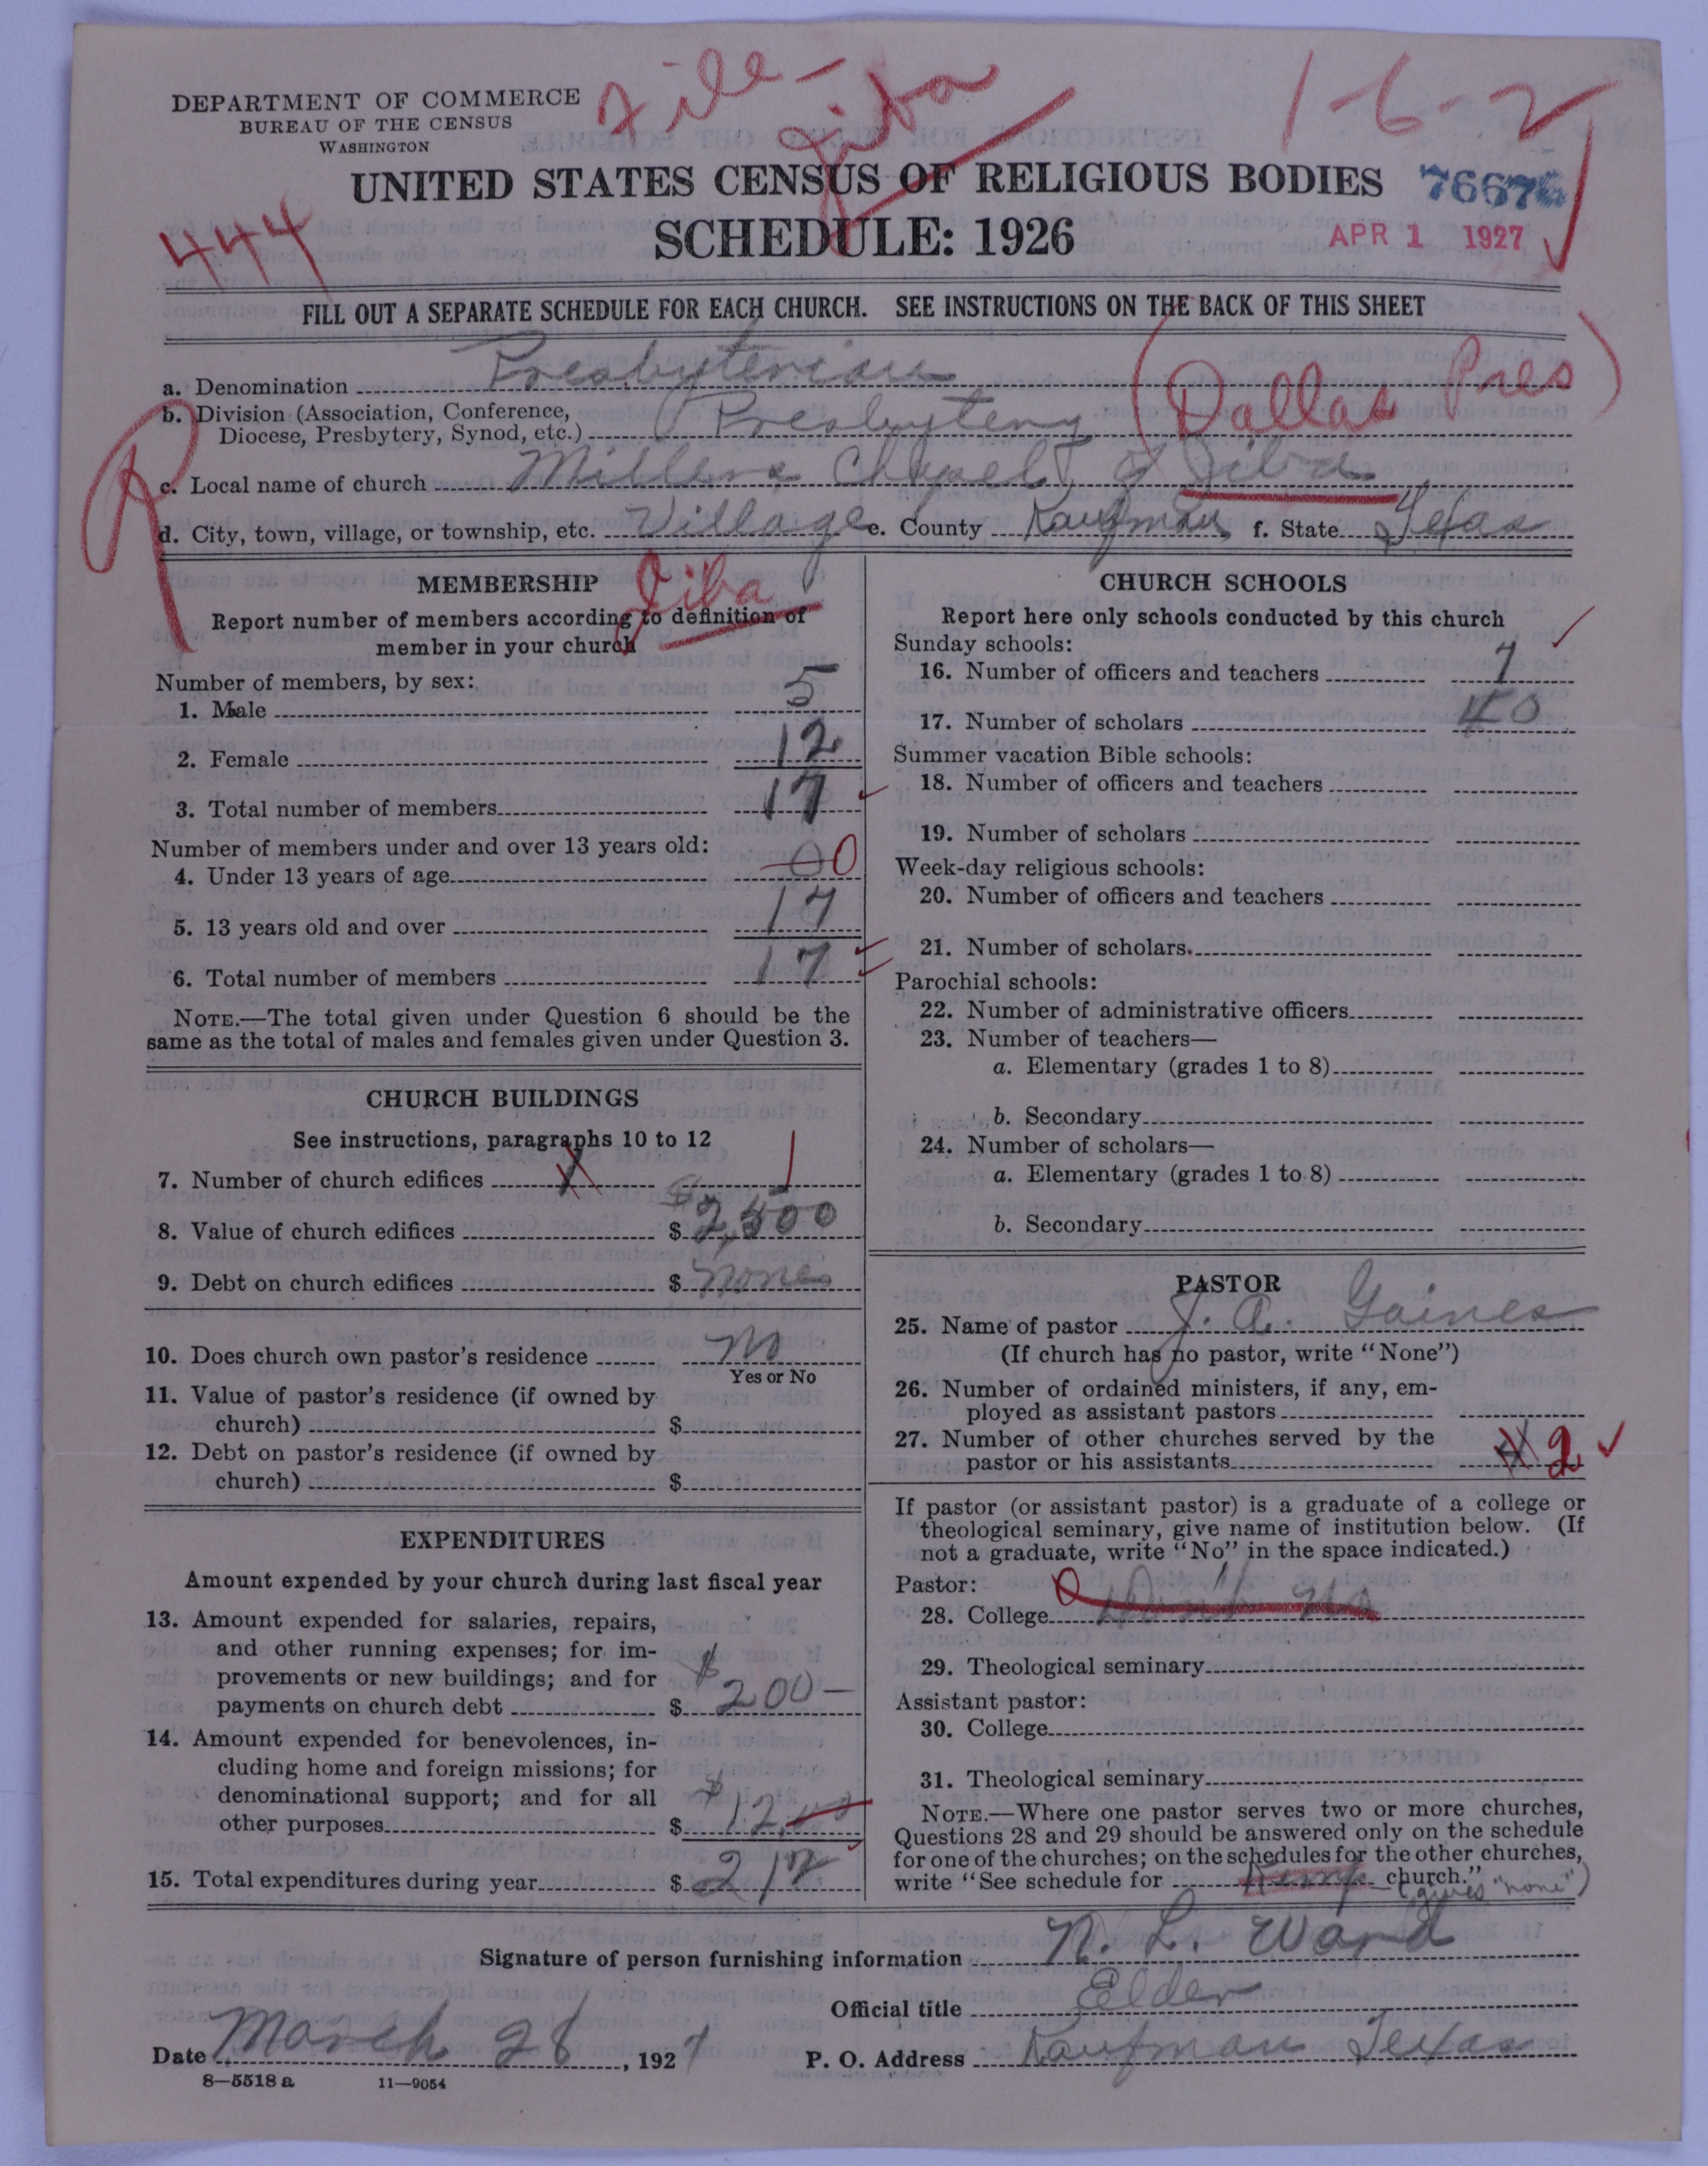 File-
Jiba
1-6-2
DEPARTMENT OF COMMERCE
BUREAU OF THE CENSUS
WASHINGTON
UNITED STATES CENSUS OF RELIGIOUS BODIES
7667
SCHEDULE: 1926
444
APR 1 1927
FILL OUT A SEPARATE SCHEDULE FOR EACH CHURCH. SEE INSTRUCTIONS ON THE BACK OF THIS SHEET
a. Denomination Presbyterian
b. Division (Association, Conference,
Diocese, Presbytery, Synod, etc.) Presbytery (Dallas Pres)
c. Local name of church Millers Chapel of Jiba
d. City, town, village, or township, etc. Village e. County Kaufman f. State Texas
Jiba
MEMBERSHIP
Report number of members according to definition of
member in your church
Number of members, by sex:
1. Male 5
2. Female 12
3. Total number of members 17
Number of members under and over 13 years old:
4. Under 13 years of age 0
5. 13 years old and over 17
6. Total number of members 17
NOTE.—The total given under Question 6 should be the
same as the total of males and females given under Question 3.
CHURCH BUILDINGS
See instructions, paragraphs 10 to 12
7. Number of church edifices 1
8. Value of church edifices $ 2,500
9. Debt on church edifices $ None
10. Does church own pastor's residence No
Yes or No
11. Value of pastor's residence (if owned by
church) $
12. Debt on pastor's residence (if owned by
church) $
EXPENDITURES
Amount expended by your church during last fiscal year
13. Amount expended for salaries, repairs,
and other running expenses; for im-
provements or new buildings; and for
payments on church debt $ $200—
14. Amount expended for benevolences, in-
cluding home and foreign missions; for
denominational support; and for all
other purposes $ $12.00
15. Total expenditures during year $ 212
CHURCH SCHOOLS
Report here only schools conducted by this church
Sunday schools:
16. Number of officers and teachers 7
17. Number of scholars 40
Summer vacation Bible schools:
18. Number of officers and teachers
19. Number of scholars
Week-day religious schools:
20. Number of officers and teachers
21. Number of scholars
Parochial schools:
22. Number of administrative officers
23. Number of teachers—
a. Elementary (grades 1 to 8)
b. Secondary
24. Number of scholars—
a. Elementary (grades 1 to 8)
b. Secondary
PASTOR
25. Name of pastor J. A. Gaines
(If church has no pastor, write "None")
26. Number of ordained ministers, if any, em-
ployed as assistant pastors
27. Number of other churches served by the
pastor or his assistants 2
If pastor (or assistant pastor) is a graduate of a college or
theological seminary, give name of institution below. (If
not a graduate, write "No" in the space indicated.)
Pastor:
28. College
29. Theological seminary
Assistant pastor:
30. College
31. Theological seminary
NOTE.—Where one pastor serves two or more churches,
Questions 28 and 29 should be answered only on the schedule
for one of the churches; on the schedules for the other churches,
write "See schedule for Kemp church."
(gives "none")
Signature of person furnishing information N. L. Ward
Official title Elder
Date March 28, 1927 P. O. Address Kaufman Texas
8—5518 a 11—9054